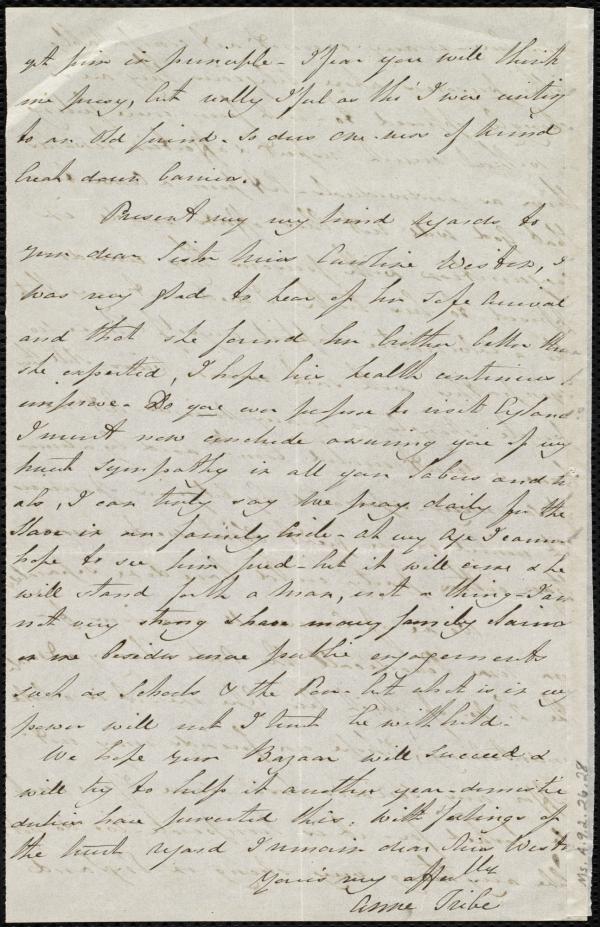 yet firm in principle - I fear you will think
me prosy, but really I feel as tho' I were writing
to an old friend - So does one-ness of mind
break down barriers.
Present my very kind regards to
your dear Sister Miss Caroline Weston, I
was very glad to hear of her safe arrival
and that she found her brother better than
she expected, I hope his health continues to
improve - Do you ever purpose to visit England?
I must now conclude assuring you of my
much sympathy in all your labors and
also, I can truly say we pray daily for the
Slave in our family circle - at my age I cannot
hope to see him freed - but it will come & he
will stand forth a man, not a thing - I am
not very strong & have many family claims
on me besides some public engagements
such as Schools & the Poor - but what is in my
power will not I trust be withheld.
We hope your Bazaar will succeed &
will try to help it another year - domestic
duties have prevented this. With feelings of
the truest regard I remain dear Miss Weston
Yours very affectly
Anne Tribe
Ms. A.9.2.26.28